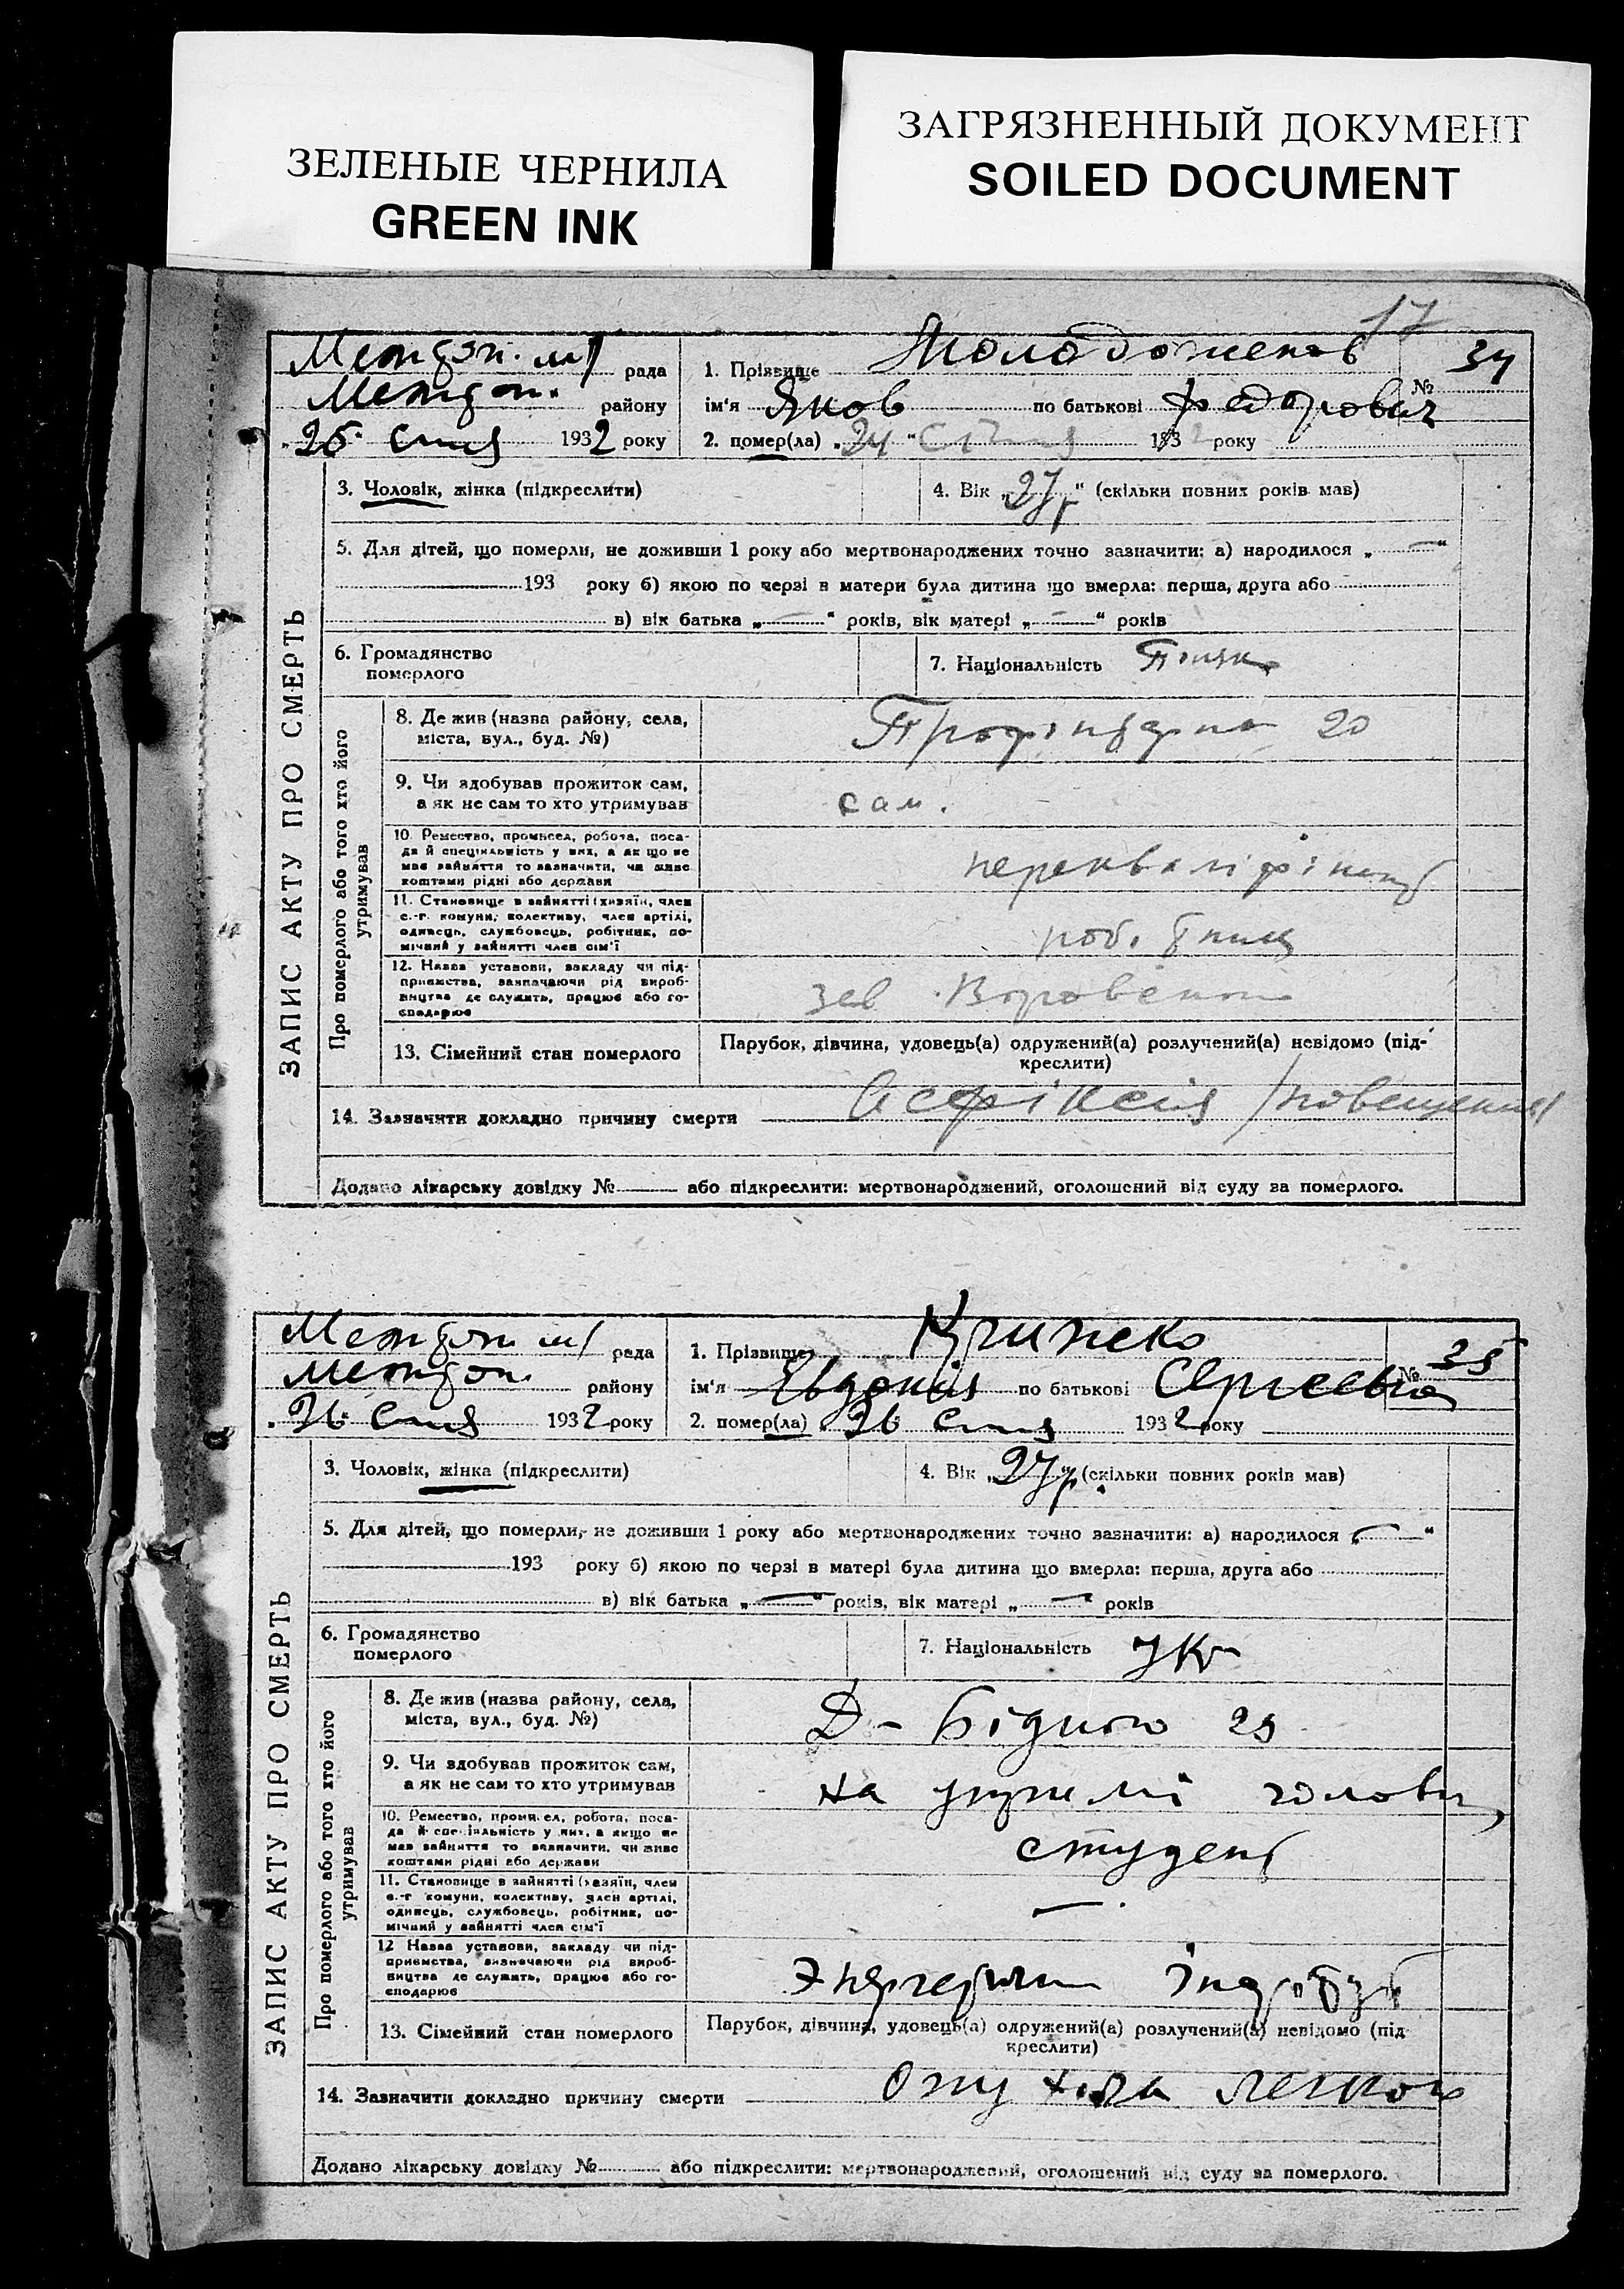 ЗЕЛЕНЫЕ ЧЕРНИЛА
GREEN INK
ЗАГРЯЗНЕННЫЙ ДОКУМЕНТ
SOILED DOCUMENT
17
рада
1. Прізвище
№ 34
району
ім'я Яков по батькові Федорович
1932 року
2. помер(ла) „24“ Січня 193 року
ЗАПИС АКТУ ПРО СМЕРТЬ
3. Чоловік, жінка (підкреслити)
4. Вік „27р“ (скільки повних років мав)
5. Для дітей, що померли, не доживши 1 року або мертвонароджених точно зазначити: а) народилося „—“
193 року б) якою по черзі в матери була дитина що вмерла: перша, друга або
в) вік батька „—“ років, вік матері „—“ років
6. Громадянство
померлого
7. Національність
Про померлого або того хто його
утримував
8. Де жив (назва району, села,
міста, вул., буд. №)
20
9. Чи здобував прожиток сам,
а як не сам то хто утримував
сам.
10. Ремество, промисел, робота, поса-
да й спеціяльність у них, а як що не
мав зайняття то зазначити, чи живе
коштами рідні або держави
11. Становище в зайнятті (хазяїн, член
с.-г. комуни, колективу, член артілі,
одинець, службовець, робітник, по-
мічний у зайнятті член сім'ї
роб.
12. Назва установи, закладу чи під-
приємства, зазначаючи рід вироб-
ництва де служить, працює або го-
сподарює
зав
13. Сімейний стан померлого
Парубок, дівчина, удовець(а) одружений(а) розлучений(а) невідомо (під-
креслити)
14. Зазначити докладно причину смерти Асфіксія /повешення/
Додано лікарську довідку № або підкреслити: мертвонароджений, оголошений від суду за померлого.
рада
1. Прізвище
№ 35
району
ім'я Евдокія по батькові Сергеевна
26 1932 року
2. помер(ла) 26 1932 року
ЗАПИС АКТУ ПРО СМЕРТЬ
3. Чоловік, жінка (підкреслити)
4. Вік „27р“ (скільки повних років мав)
5. Для дітей, що померли, не доживши 1 року або мертвонароджених точно зазначити: а) народилося „—“
193 року б) якою по черзі в матері була дитина що вмерла: перша, друга або
в) вік батька „—“ років, вік матері „—“ років
6. Громадянство
померлого
7. Національність Укр
Про померлого або того хто його
утримував
8. Де жив (назва району, села,
міста, вул., буд. №)
Д-Бідного
9. Чи здобував прожиток сам,
а як не сам то хто утримував
на
10. Ремество, промисел, робота, поса-
да й спеціяльність у них, а якщо не
мав зайняття то зазначити, чи живе
коштами рідні або держави
студент
11. Становище в зайнятті (хазяїн, член
с.-г комуни, колективу, член артілі,
одинець, службовець, робітник, по-
мічний у зайнятті член сім'ї
—
12 Назва установи, закладу чи під-
приємства, зазначаючи рід вироб-
ництва де служить, працює або го-
сподарює
13. Сімейний стан померлого
Парубок, дівчина, удовець(а) одружений(а) розлучений(а) невідомо (під-
креслити)
14. Зазначити докладно причину смерти Опухоль легкого
Додано лікарську довідку № або підкреслити: мертвонароджений, оголошений від суду за померлого.